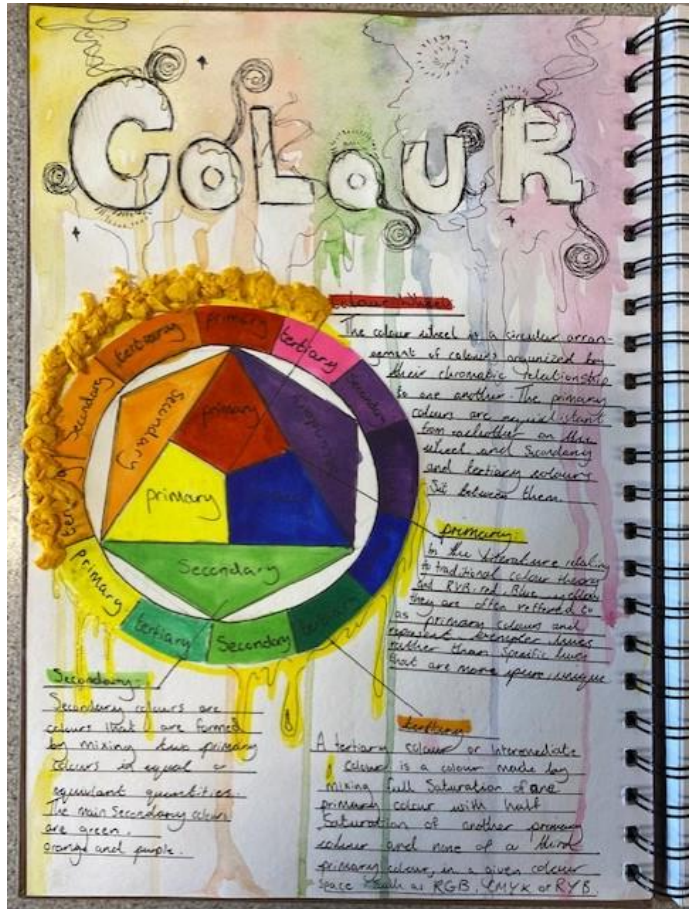 COLOUR
Colour Wheel
The colour wheel is a circular arran-
gement of colours organized by
their chromatic relationship
to one another. The primary
colours are equidistant
from eachother on the
wheel and Secondary
and tertiary colours
Sit between them.
primary
tertiary
Secondary
tertiary
Secondary
tertiary
primary
tertiary
Secondary
tertiary
Secondary
primary
Secondary
primary
Secondary
primary:
In the literature relating
to traditional colour theory
and RYB, red, Blue, yellow
they are often reffered to
as primary colours and
represent hues
rather than Specific hues
that are more pure, unique
Secondary:-
Secondary colours are
colours that are formed
by mixing two primary
colours in equal or
equivlant quantities.
The main Secondary colours
are green,
orange and purple.
tertiary
A tertiary colour or Intermediate
colour is a colour made by
mixing full Saturation of one
primary colour with half
Saturation of another primary
colour and none of a third
primary colour, in a given colour
Space such as RGB, CMYK or RYB